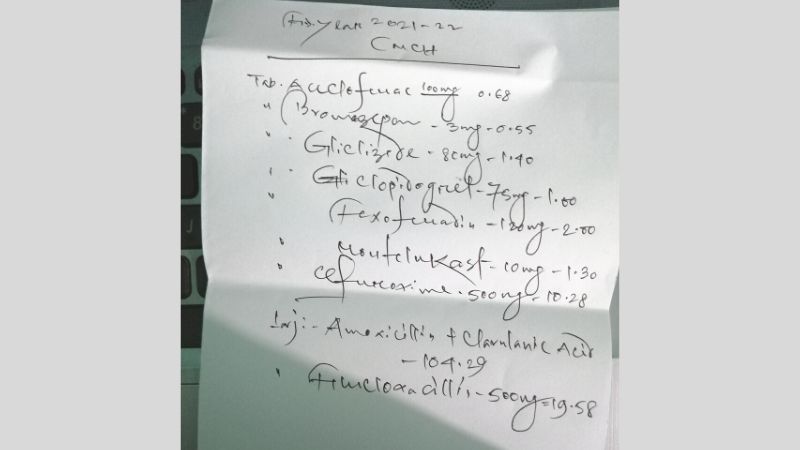 Fis. year 2021-22
CMCH
Tab. Aceclofenac 100mg 0.68
" Bromazepam - 3mg - 0.55
" Gliclizide - 80mg - 1.40
" Clopidogriel - 75mg - 1.00
" Fexofenadin - 120mg - 2.00
" Montelukast - 10mg - 1.30
" Cefuroxime - 500mg - 10.28
Inj:- Amoxicillin + Clavulanic Acid
- 104.29
" Flucloxacillin - 500mg = 19.58